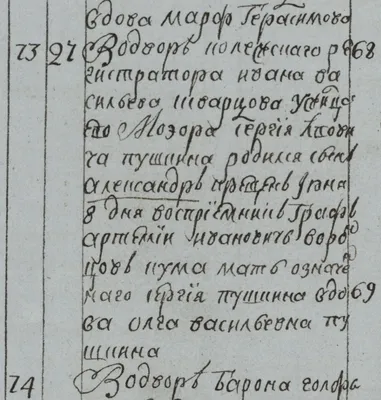 вдова марфа Герасимова
73 27 Водворѣ колежскаго ре 68
гистратора ивана ва
сильева шварцова ужилца
ево Моэора Сергия Лвови
ча пушкина родился сынъ
александръ крещенъ июня
8 дня восприемникъ Графъ
артемий ивановичъ ворон
цовъ кума мать означен
наго сергия пушкина вдо 69
ва олга васильевна пу
шкина
74 Водворѣ барона